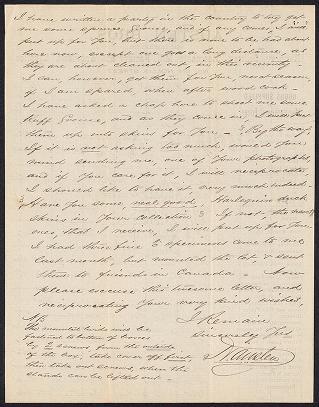 I have written a party in the country to try get
me some spruce Grouse, and if any come, I will
put up for you. But there is none to be had about
here now, except one goes a long distance, as
they are about cleaned out, in this vicinity.
I can, however, get them for you, next season,
if I am spared, when after wood cock.
I have asked a chap here to shoot me some
Ruff Grouse, and as they come in, I will put
them up into skins for you. By the way,
If it is not asking too much, would you
mind sending me, one of your photographs,
and if you care, for it, I will reciprocate.
I should like to have it, very much indeed.
Have you some, real good, Harlequin duck
skins in your Collection? If not, the next
ones, that I receive, I will put up for you.
I had three fine specimens come to me
last month, but mounted the lot & sent
them to friends in Canada. Now
please excuse this tiresome letter, and
reciprocating your very kind wishes,
I Remain
Sincerely Yrs
NB
The mounted birds will be
fastened to bottom of boxes
by 2 screws, from the outside
of the box, take cover off first,
then take out screws, when the
stands can be lifted out.